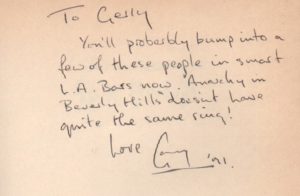 To Gerry
You'll probably bump into a
few of these people in smart
L.A. Bars now. 'Anarchy in
Beverly Hills' doesn't have
quite the same ring!
Love
'91.